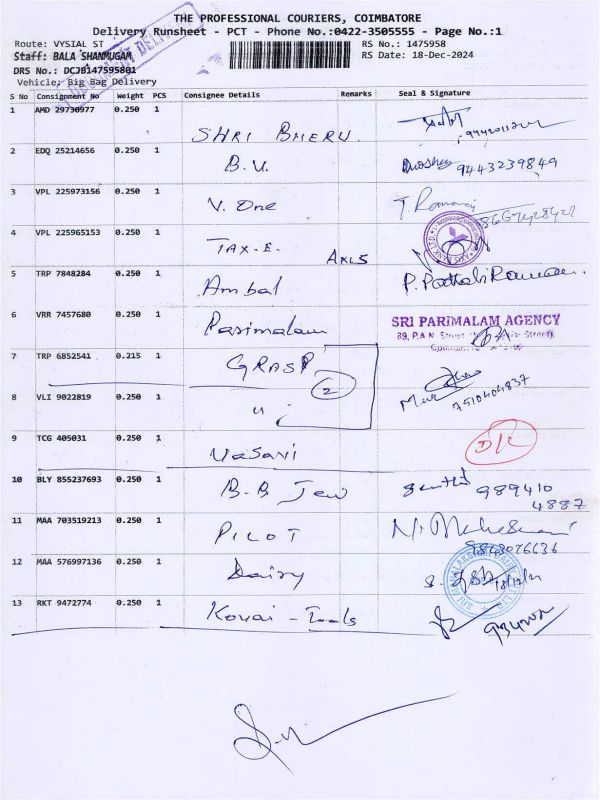 THE PROFESSIONAL COURIERS, COIMBATORE
Delivery Runsheet - PCT - Phone No.:0422-3505555 - Page No.:1
Route: VYSIAL ST
RS No.: 1475958
Staff: BALA SHANMUGAM
RS Date: 18-Dec-2024
DRS No.: DCJB147595801
Vehicle: Big Bag Delivery
S No Consignment No Weight PCS Consignee Details Remarks Seal & Signature
1 AMD 29730977 0.250 1 SHRI BHERU.
2 EDQ 25214656 0.250 1 B.V. 9443239849
3 VPL 225973156 0.250 1 V. One
4 VPL 225965153 0.250 1 TAX-E- AXLS
5 TRP 7848284 0.250 1 Ambal
6 VRR 7457680 0.250 1 Parimalam SRI PARIMALAM AGENCY
89, P.A.N. Street
7 TRP 6852541 0.215 1 GRASP 2
8 VLI 9022819 0.250 1 " 7510404837
9 TCG 405031 0.250 1 Vasavi D/L
10 BLY 855237693 0.250 1 B.B. Jew 989410
4887
11 MAA 703519213 0.250 1 PILOT 9843076636
12 MAA 576997136 0.250 1 Dairy
13 RKT 9472774 0.250 1 Kovai - Tools